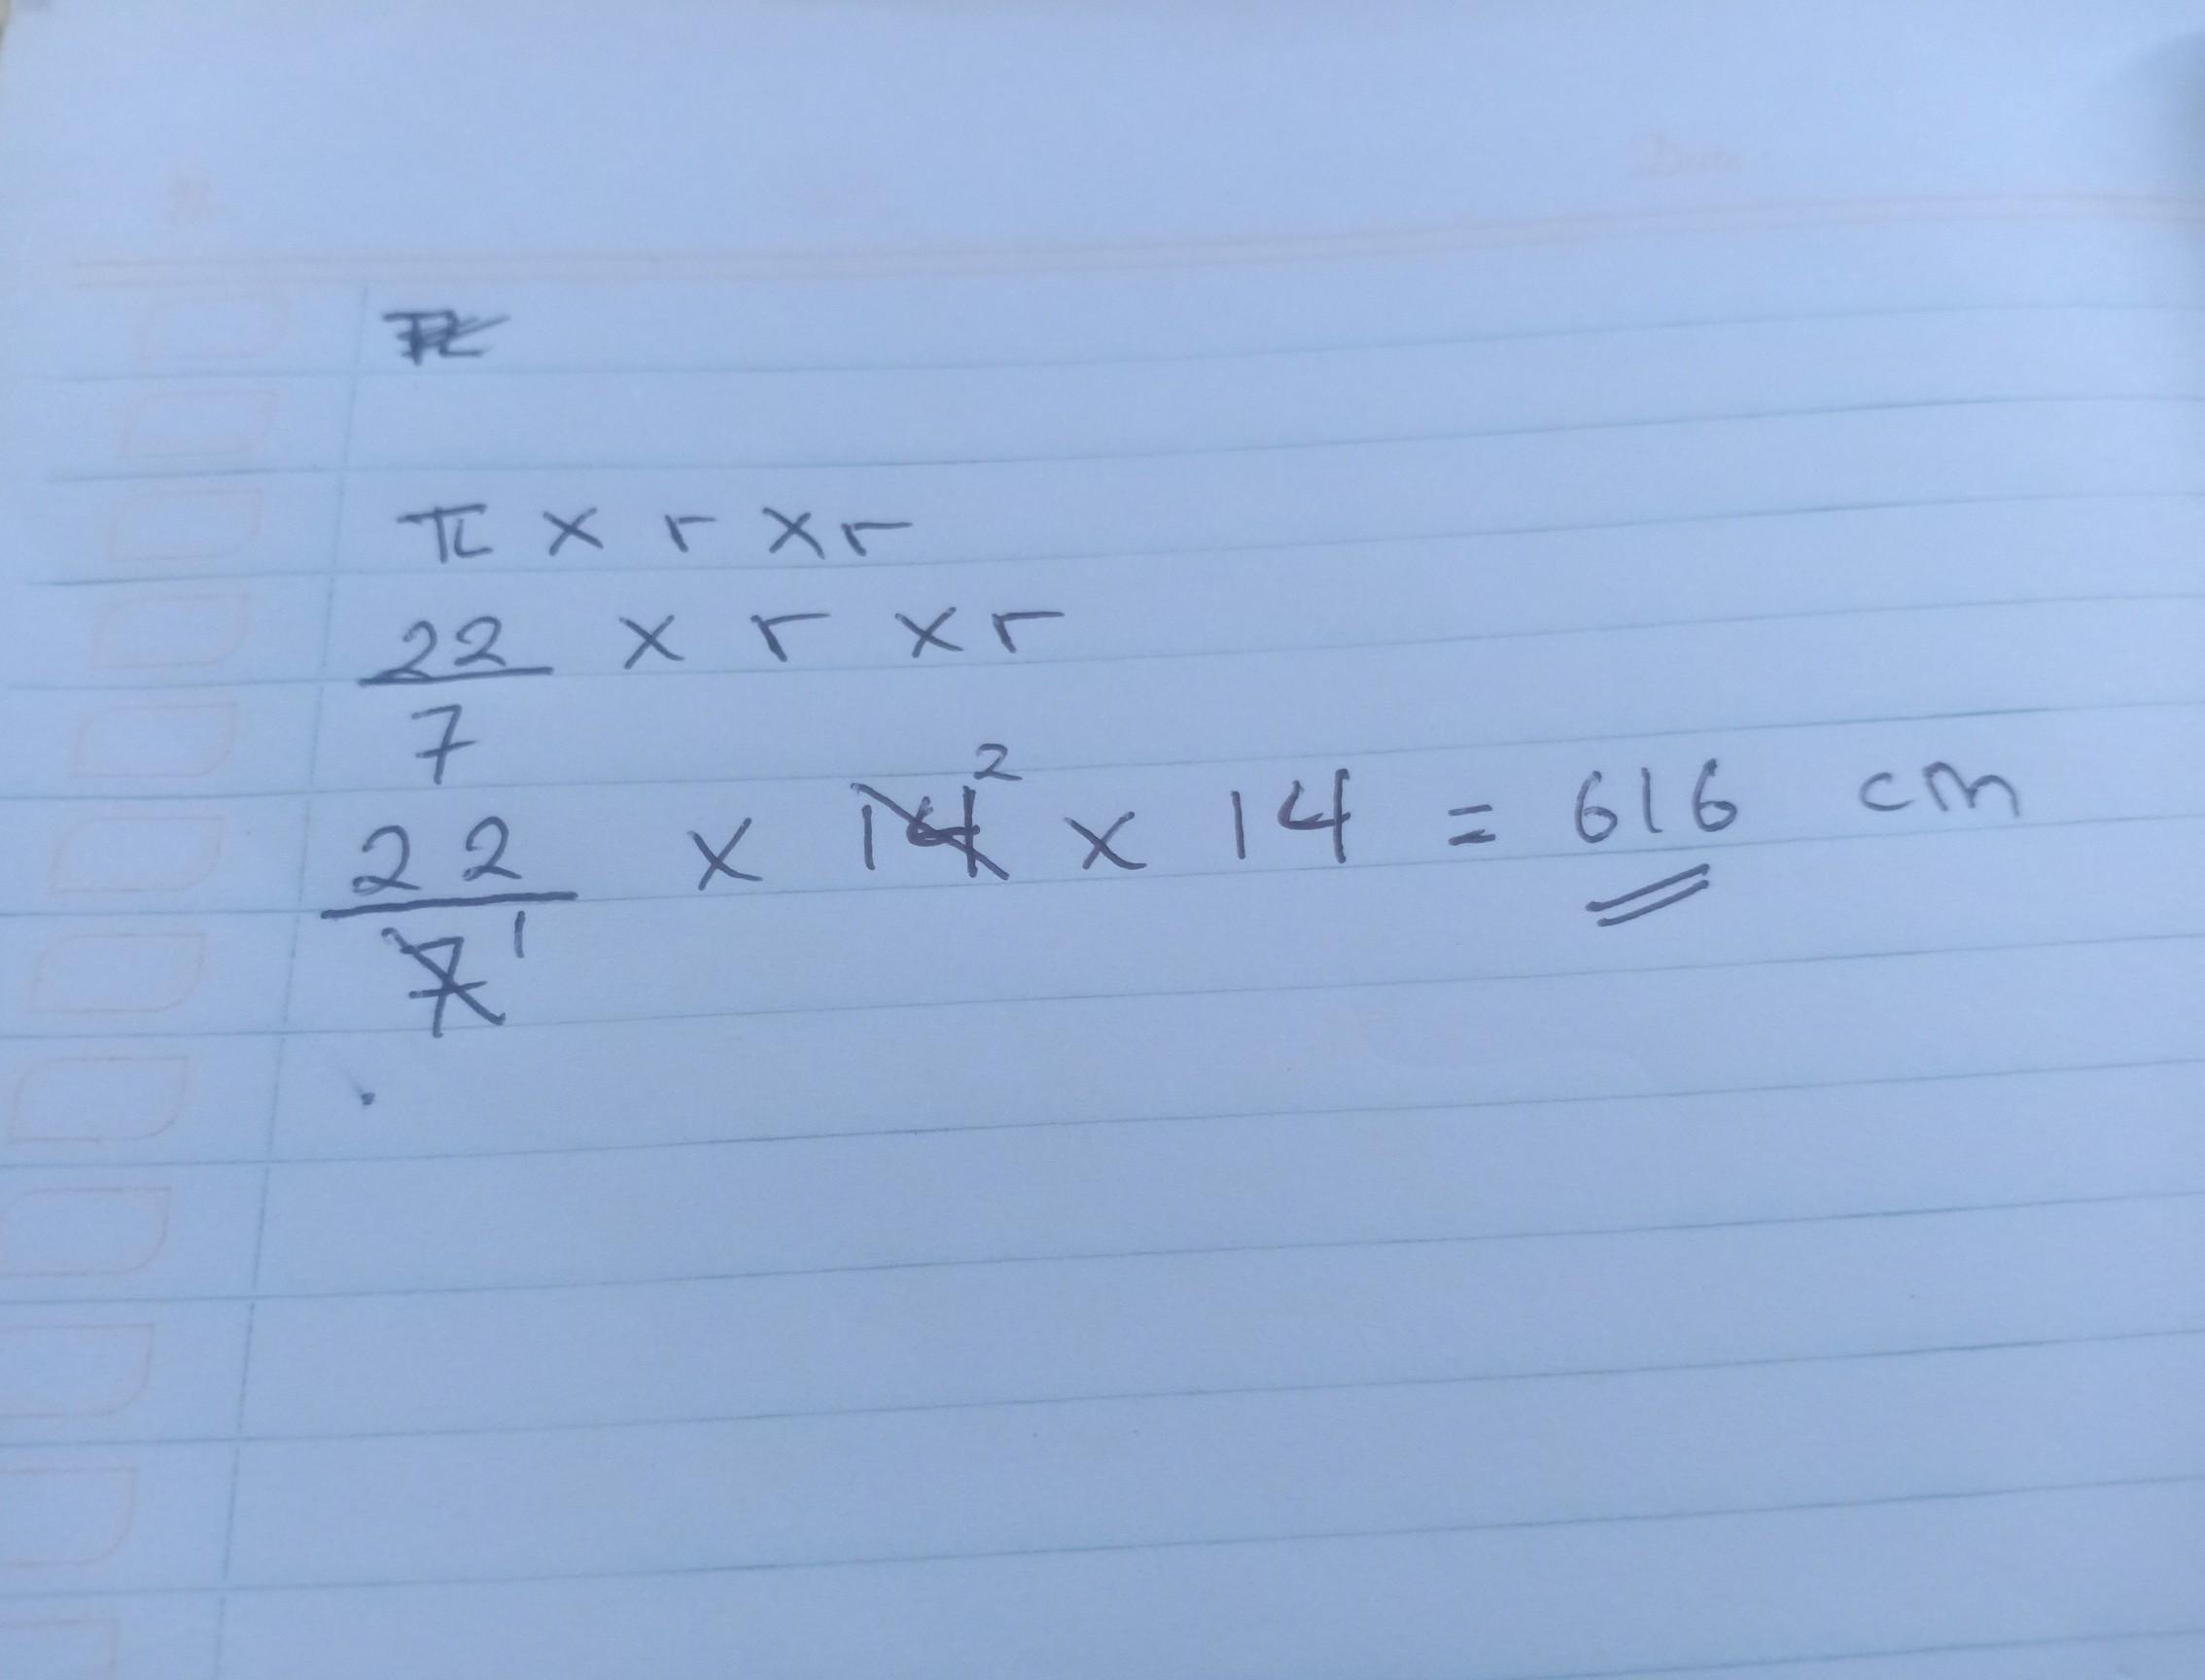 π × r × r
22/7 × r × r
22/7 1 × 14 2 × 14 = 616 cm